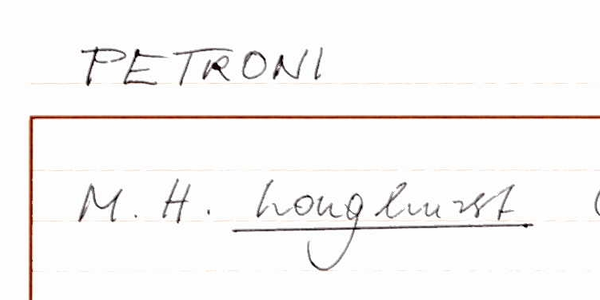 PETRONI
M. H. Longhurst (